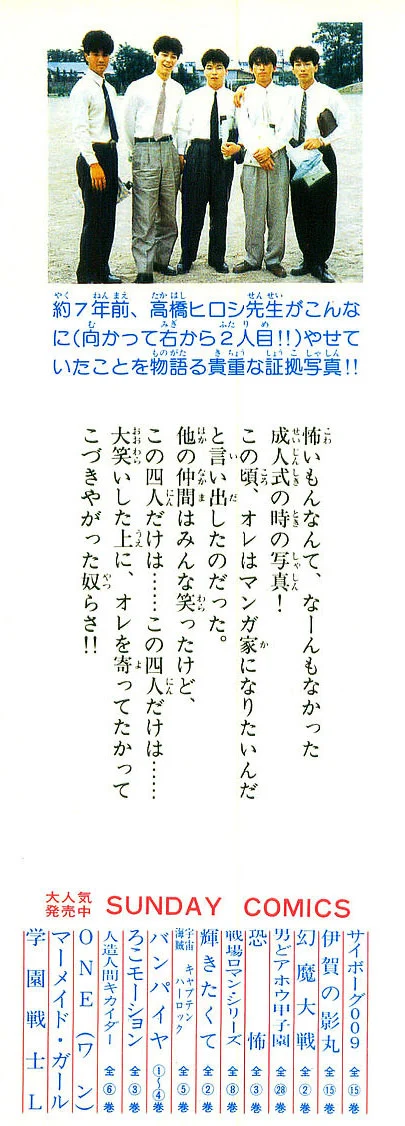 約7年前、高橋ヒロシ先生がこんな
に(向かって右から2人目!!)やせて
いたことを物語る貴重な証拠写真!!
怖いもんなんて、なーんもなかった
成人式の時の写真!
この頃、オレはマンガ家になりたいんだ
と言い出したのだった。
他の仲間はみんな笑ったけど、
この四人だけは……この四人だけは……
大笑いした上に、オレを寄ってたかって
こづきやがった奴らさ!!
大人気
発売中 SUNDAY COMICS
サイボーグ009 全⑮巻
伊賀の影丸 全⑮巻
幻魔大戦 全②巻
男どアホウ甲子園 全㉘巻
恐怖 全③巻
戦場ロマン・シリーズ 全⑧巻
輝きたくて 全②巻
宇宙海賊 キャプテンハーロック 全⑤巻
バンパイヤ ①〜④巻
ろこモーション 全③巻
人造人間キカイダー 全⑥巻
ONE(ワン)
マーメイド・ガール
学園戦士L